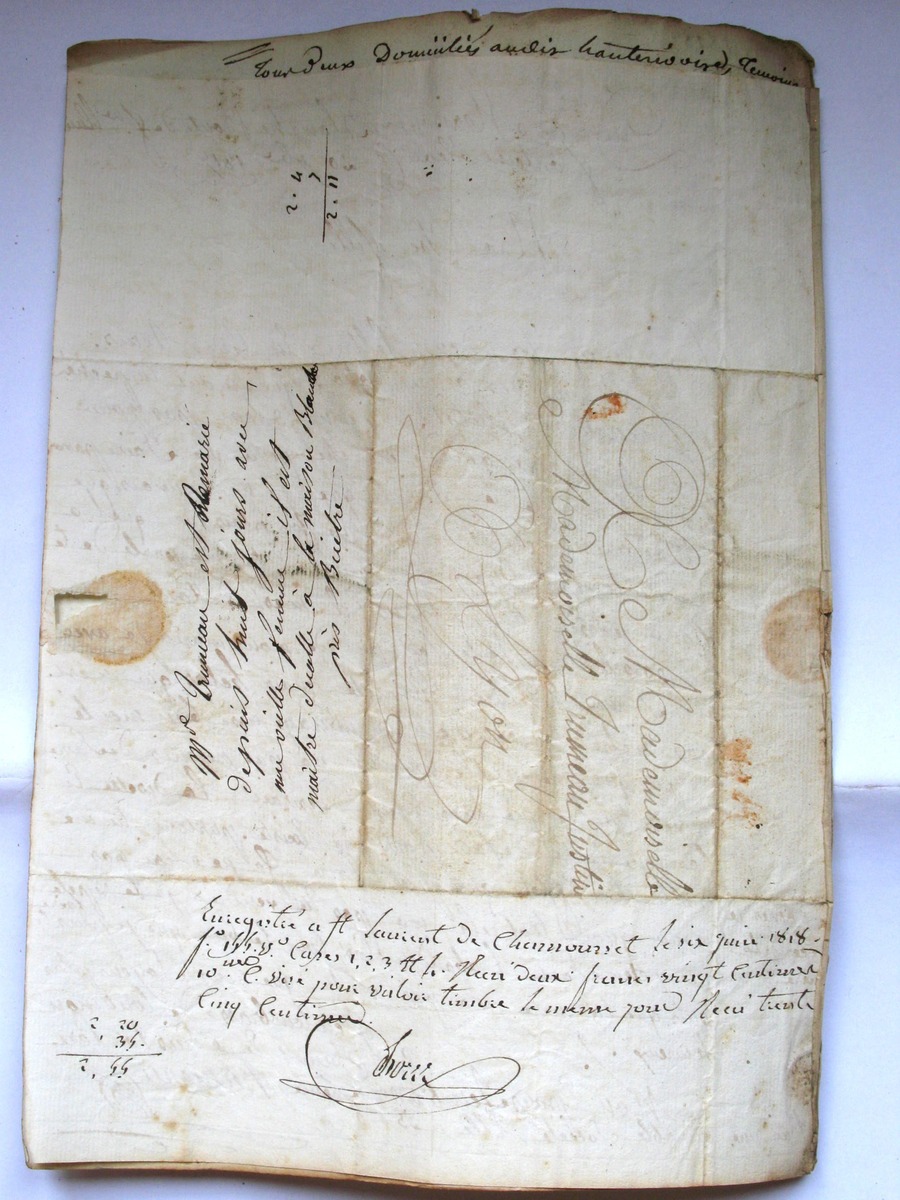 tous deux Domiciliés audit hauterivoire, temoins
2 . 4
7
2 . 11
Mde Trumeau est Remarié
depuis huit jours avec
une vielle femme, il est
maitre decolle à la maison Blanche
près Bicètre
A Mademoiselle
Mademoiselle Trumeau Justin
A Lyon
Enregistré a St Laurent de Chamousset le six juin 1818
fo 155 Vo Cases 1, 2, 3, Recu deux francs vingt Centimes
10me C. visé pour valoir timbre le meme jour Recu trente
Cinq Centimes.
2, 20
, 35.
2, 55